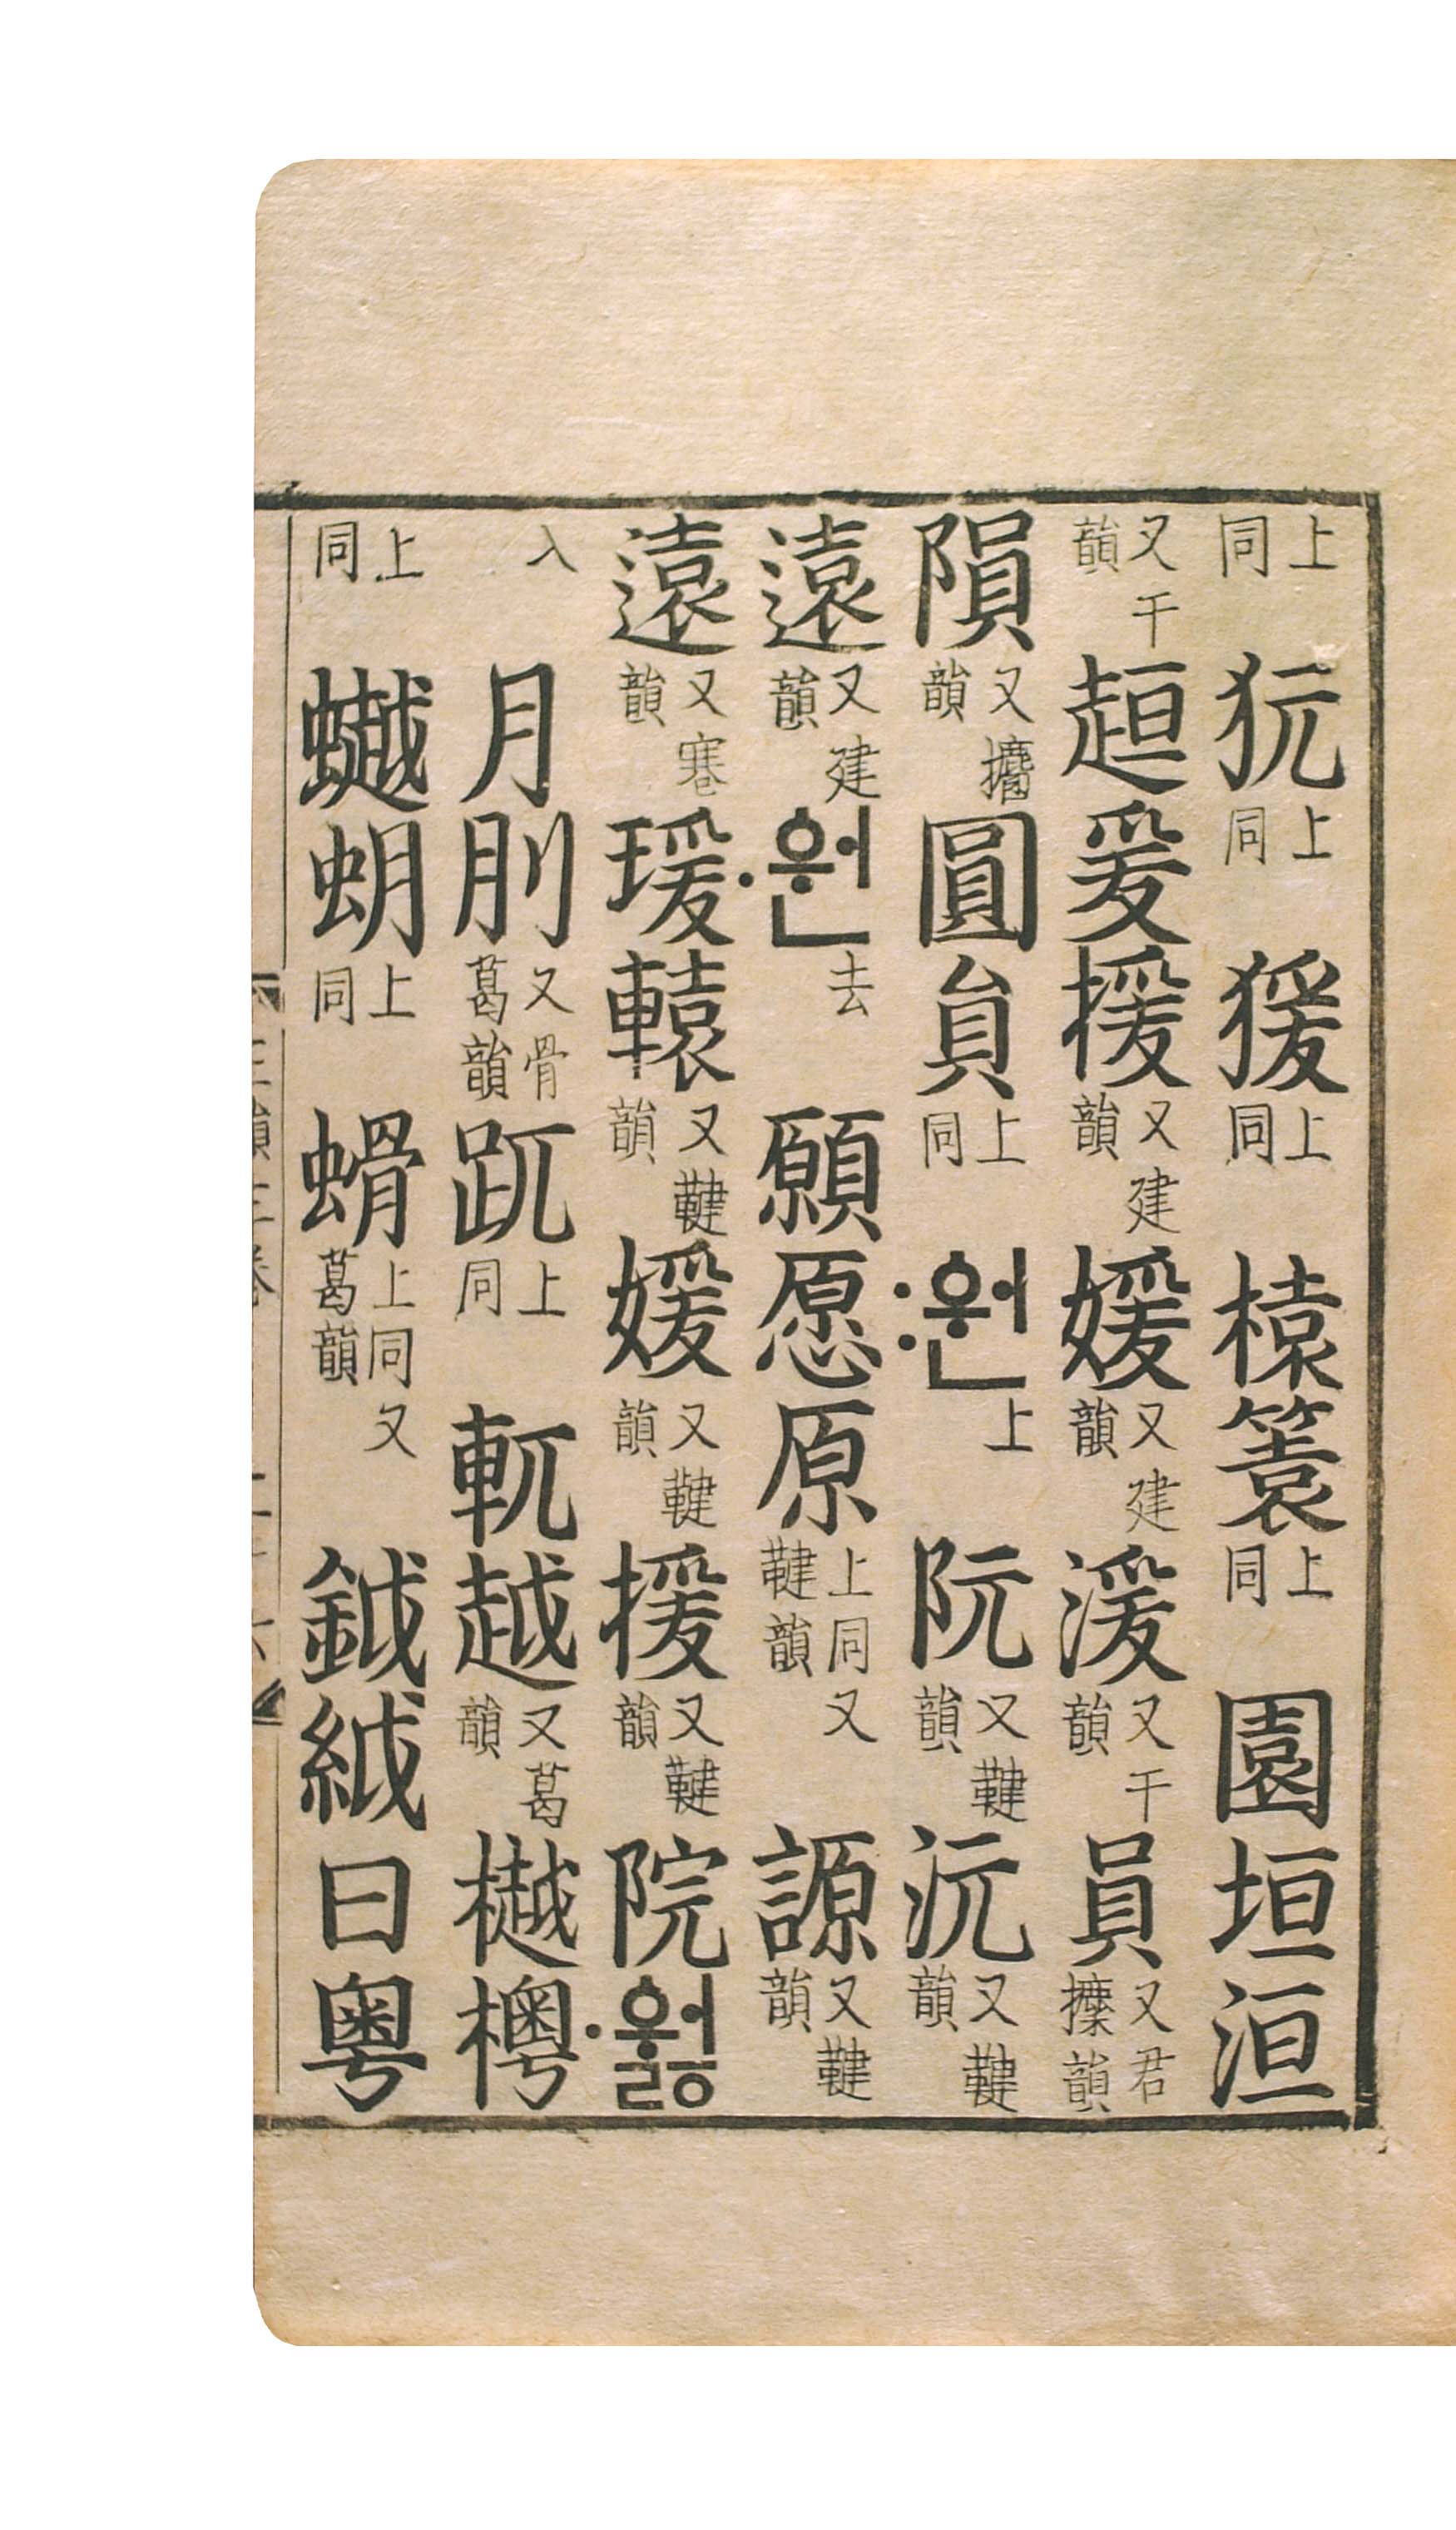 上同 上同 猨 上同 榬䈠 上同 園垣洹
又干韻 爰援 又建韻 媛 又建韻 湲 又干韻 員 又君攈韻
隕 又攟韻 圓貟 上同 :원 上 阮 又鞬韻 沅 又鞬韻
遠 又建韻 ·원 去 願愿原 上同又鞬韻 謜 又鞬韻
遠 又寋韻 瑗轅 又鞬韻 媛 又鞬韻 援 又鞬韻 院 ·워ᇙ
入 月刖 又骨葛韻 上同 軏越 又葛韻 樾
上同 蚏 上同 螖 上同又葛韻 鉞䋐曰粤